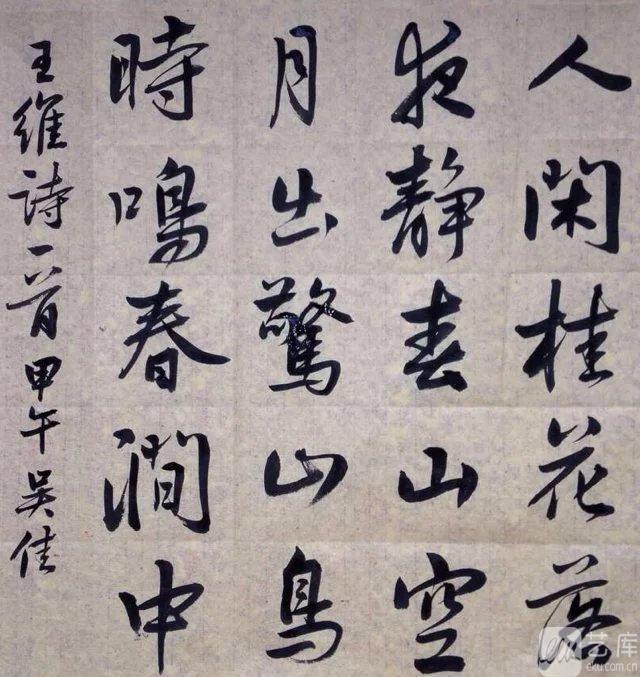 人閑桂花落
夜靜春山空
月出驚山鳥
時鳴春澗中
王維詩一首甲午吴佳
艺库
cku.com.cn